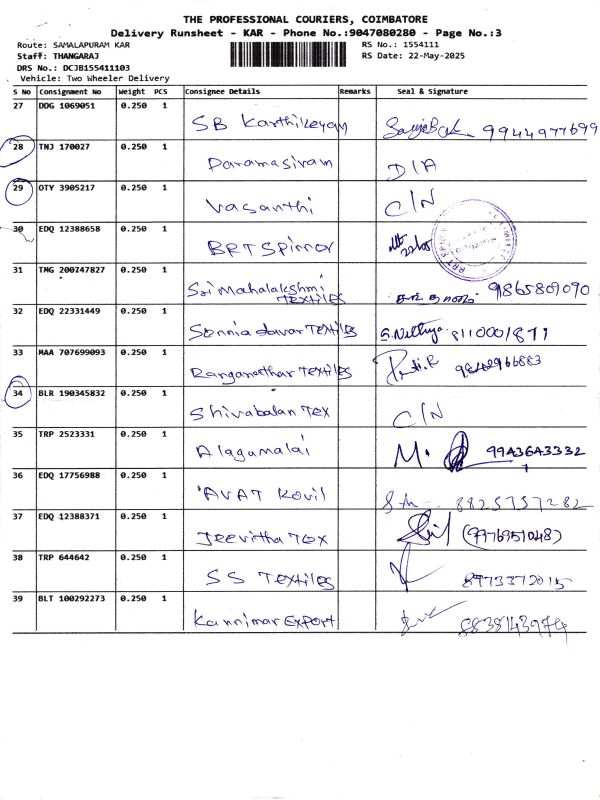 THE PROFESSIONAL COURIERS, COIMBATORE
Delivery Runsheet - KAR - Phone No.:9047080280 - Page No.:3
Route: SAMALAPURAM KAR
RS No.: 1554111
Staff: THANGARAJ
RS Date: 22-May-2025
DRS No.: DCJB155411103
Vehicle: Two Wheeler Delivery
S No Consignment No Weight PCS Consignee Details Remarks Seal & Signature
27 DDG 1069051 0.250 1 SB Karthikeyan 9944977699
28 TNJ 170027 0.250 1 Paramasivam D/A
29 OTY 3905217 0.250 1 Vasanthi C/N
30 EDQ 12388658 0.250 1 BRT Spinnor
31 TMG 200747827 0.250 1 Sri Mahalakshmi Textiles 9865809090
32 EDQ 22331449 0.250 1 Textiles S.Nithya 8110001871
33 MAA 707699093 0.250 1 Ranganathar Textiles 9842966883
34 BLR 190345832 0.250 1 Shivabalan Tex C/N
35 TRP 2523331 0.250 1 Alagamalai M. 9943643332
36 EDQ 17756988 0.250 1 AVAT Kovil 8825757282
37 EDQ 12388371 0.250 1 Jeevitha Tex (9976951048)
38 TRP 644642 0.250 1 SS Textiles 8973372015
39 BLT 100292273 0.250 1 Kannimar Export 8838143974